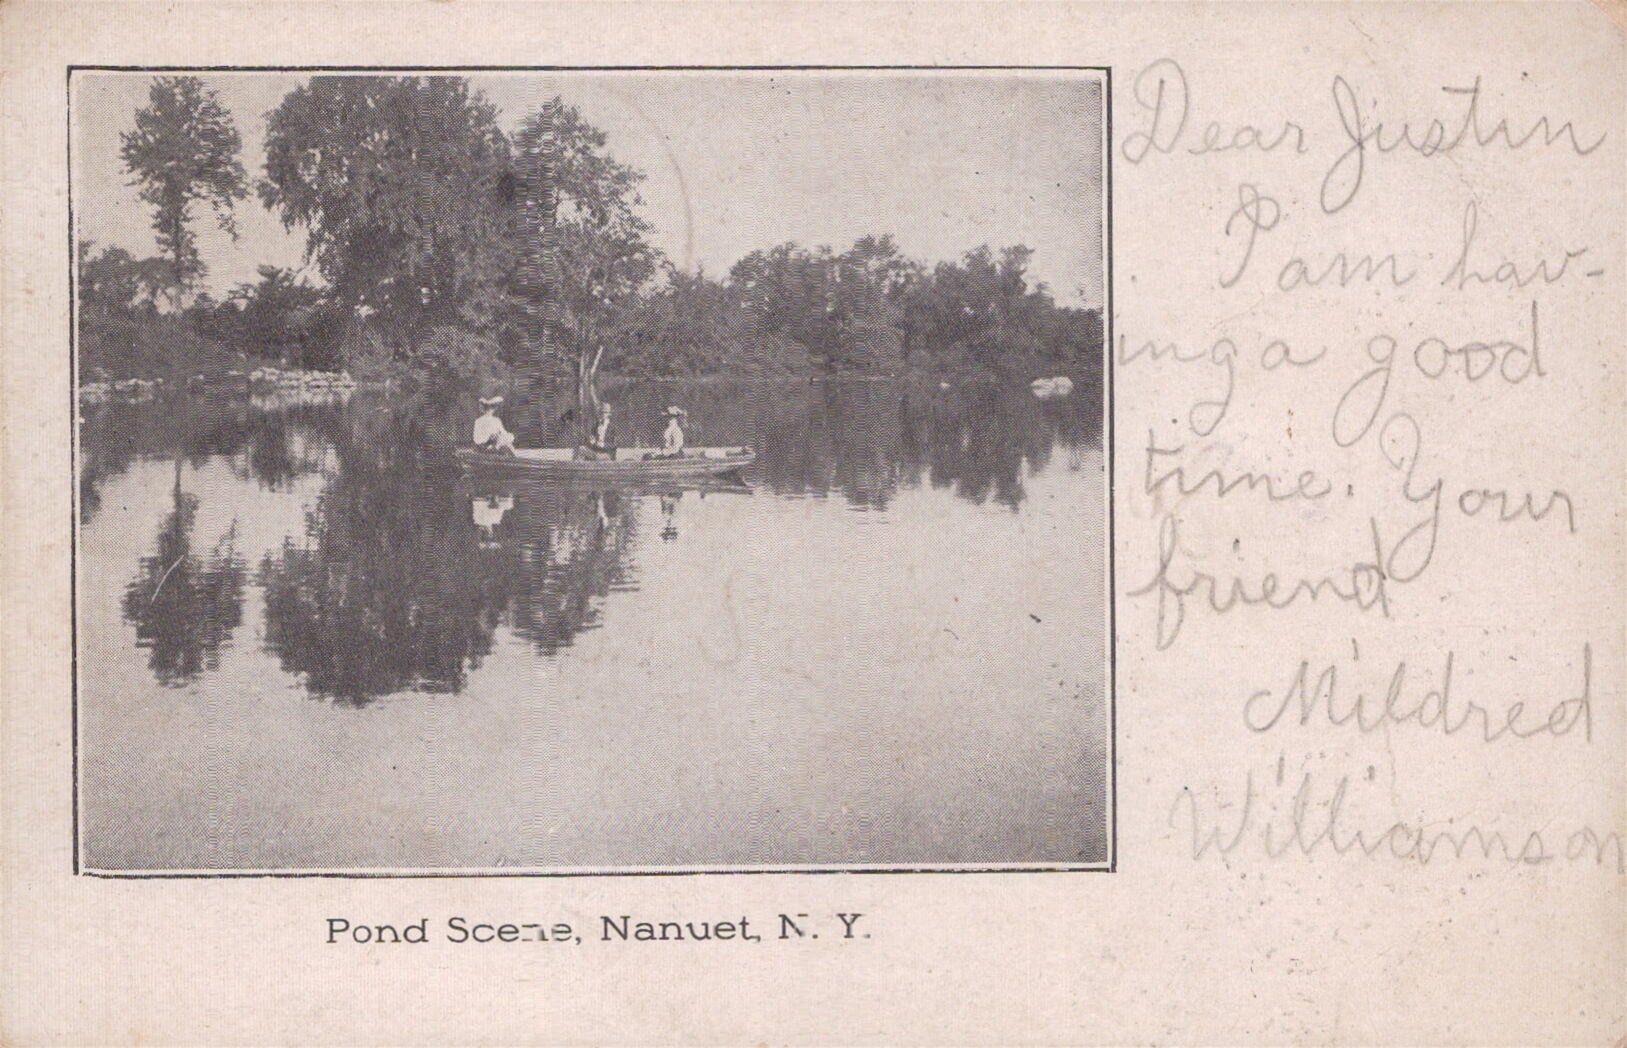 Dear Justin
I am hav-
ing a good
time. Your
friend
Mildred
Williamson
Pond Scene, Nanuet, N. Y.